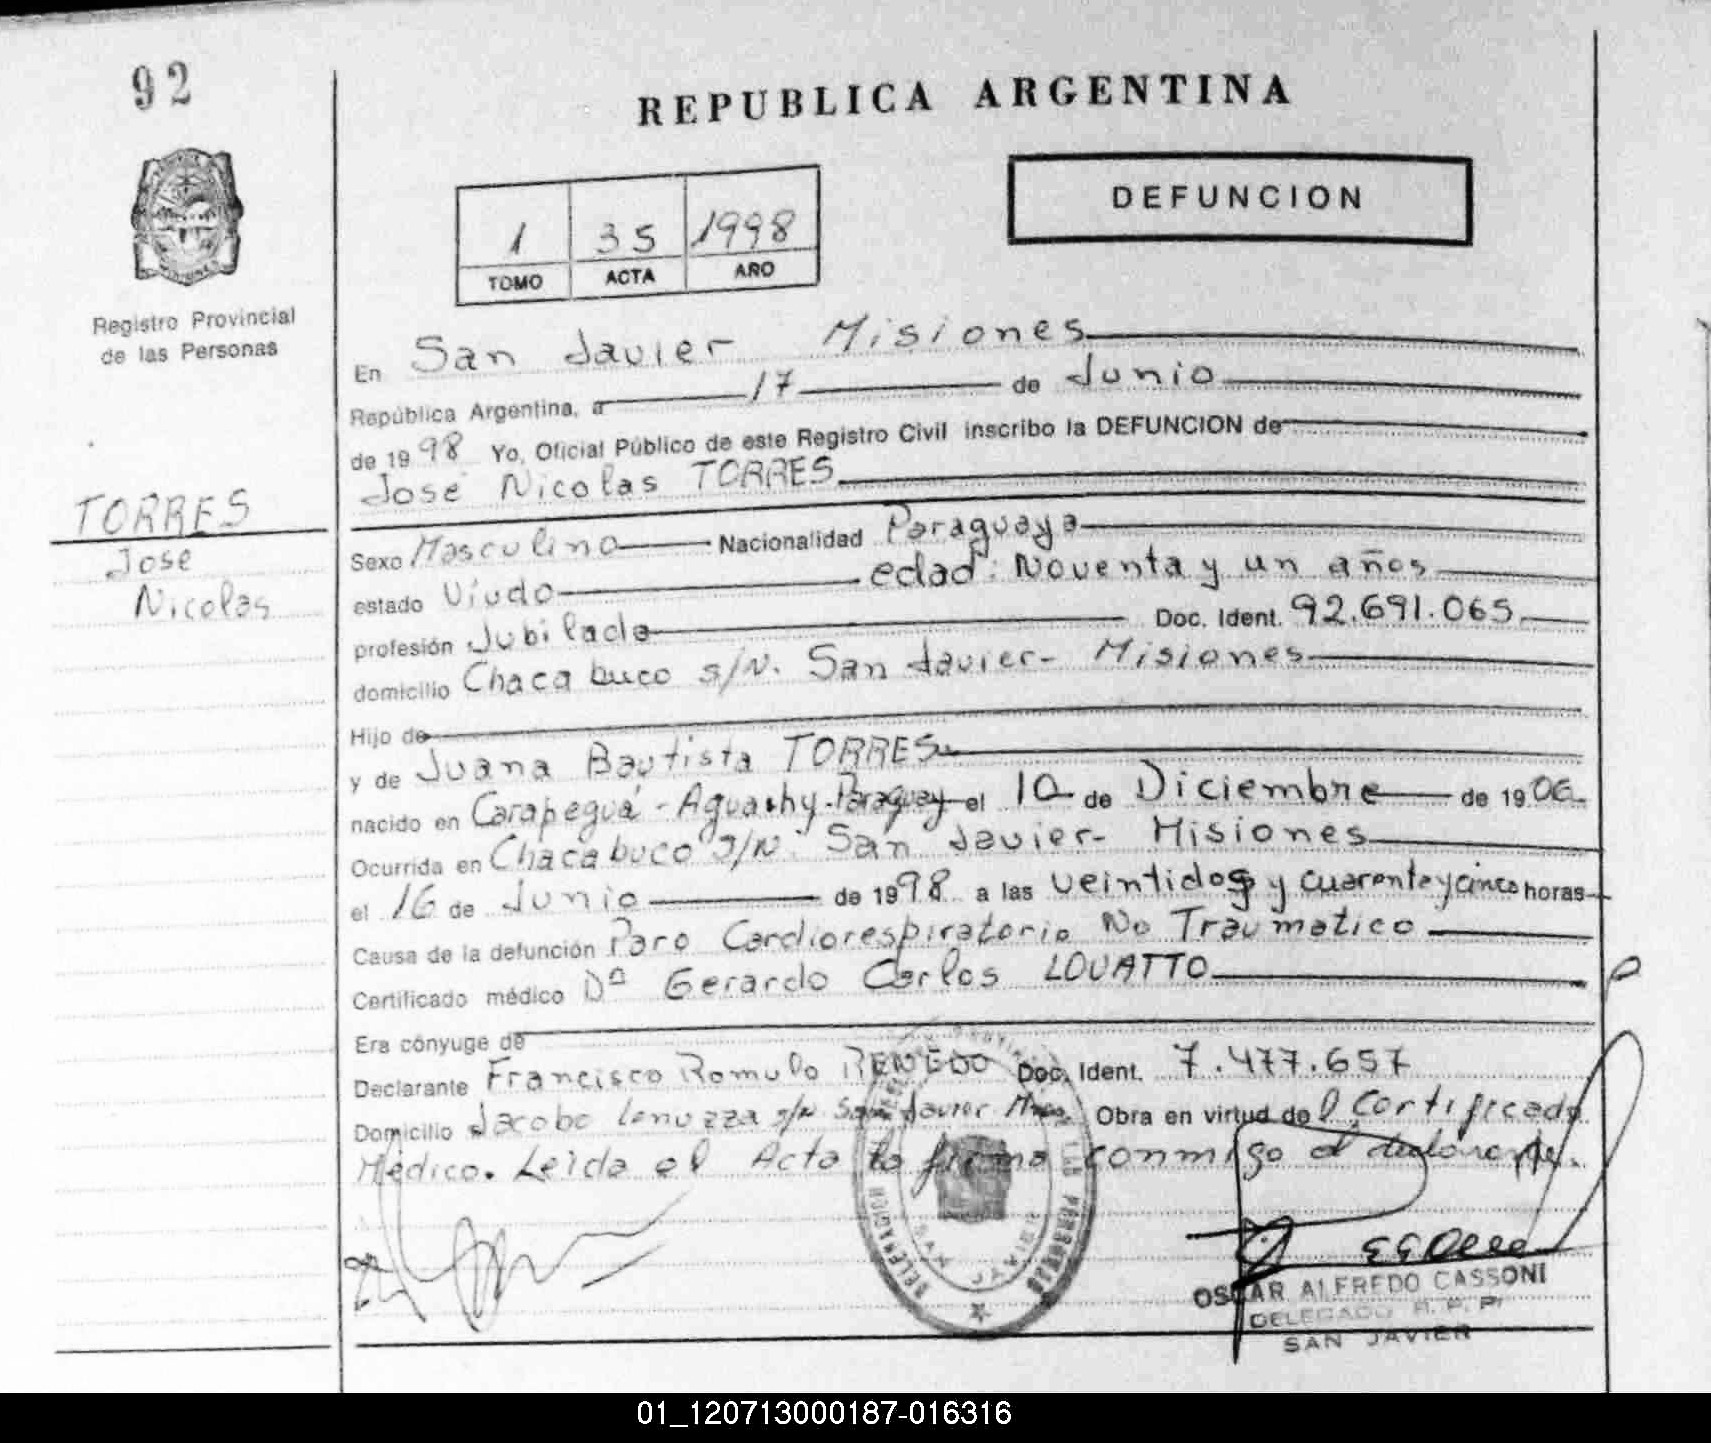 92
REPUBLICA ARGENTINA
DEFUNCION
1 35 1998
TOMO ACTA AÑO
Registro Provincial
de las Personas
En San Javier Misiones
República Argentina, a 17 de Junio
de 1998 Yo, Oficial Público de este Registro Civil inscribo la DEFUNCION de
José Nicolas TORRES
TORRES
Jose
Nicolas
Sexo Masculino Nacionalidad Paraguaya
estado Viudo edad: Noventa y un años
profesión Jubilado Doc. Ident. 92.691.065
domicilio Chacabuco s/N. San Javier - Misiones
Hijo de
y de Juana Bautista TORRES
nacido en Carapeguá - Paraguay el 10 de Diciembre de 1906
Ocurrida en Chacabuco s/N. San Javier - Misiones
el 16 de Junio de 1998 a las veintidos y cuarenta y cinco horas
Causa de la defunción Paro Cardiorespiratorio No Traumatico
Certificado médico Dº Gerardo Carlos LOVATTO
Era cónyuge de
Declarante Francisco Romulo RENEDO Doc. Ident. 7.477.657
Domicilio Jacobo s/N San Javier Mnes. Obra en virtud del Certificado
Médico. Leida el Acta la firma conmigo el declarante.
SAN JAVIER
OSCAR ALFREDO CASSONI
DELEGADO R. P. P.
SAN JAVIER
01_120713000187-016316